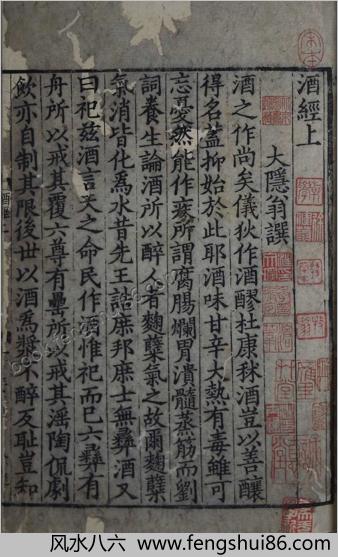 酒經上
大隱翁撰
酒之作尚矣儀狄作酒醪杜康秫酒豈以善釀
得名蓋抑始於此耶酒味甘辛大熱有毒雖可
忘憂然能作疾所謂腐腸爛胃潰髓蒸筋而劉
詞養生論酒所以醉人者麴蘖氣之故爾麴蘖
氣消皆化為水昔先王誥庶邦庶士無彝酒又
曰祀茲酒言天之命民作酒惟祀而已六彝有
舟所以戒其覆六尊有罍所以戒其淫陶侃劇
飲亦自制其限後世以酒為漿不醉反恥豈知
风水八六 www.fengshui86.com